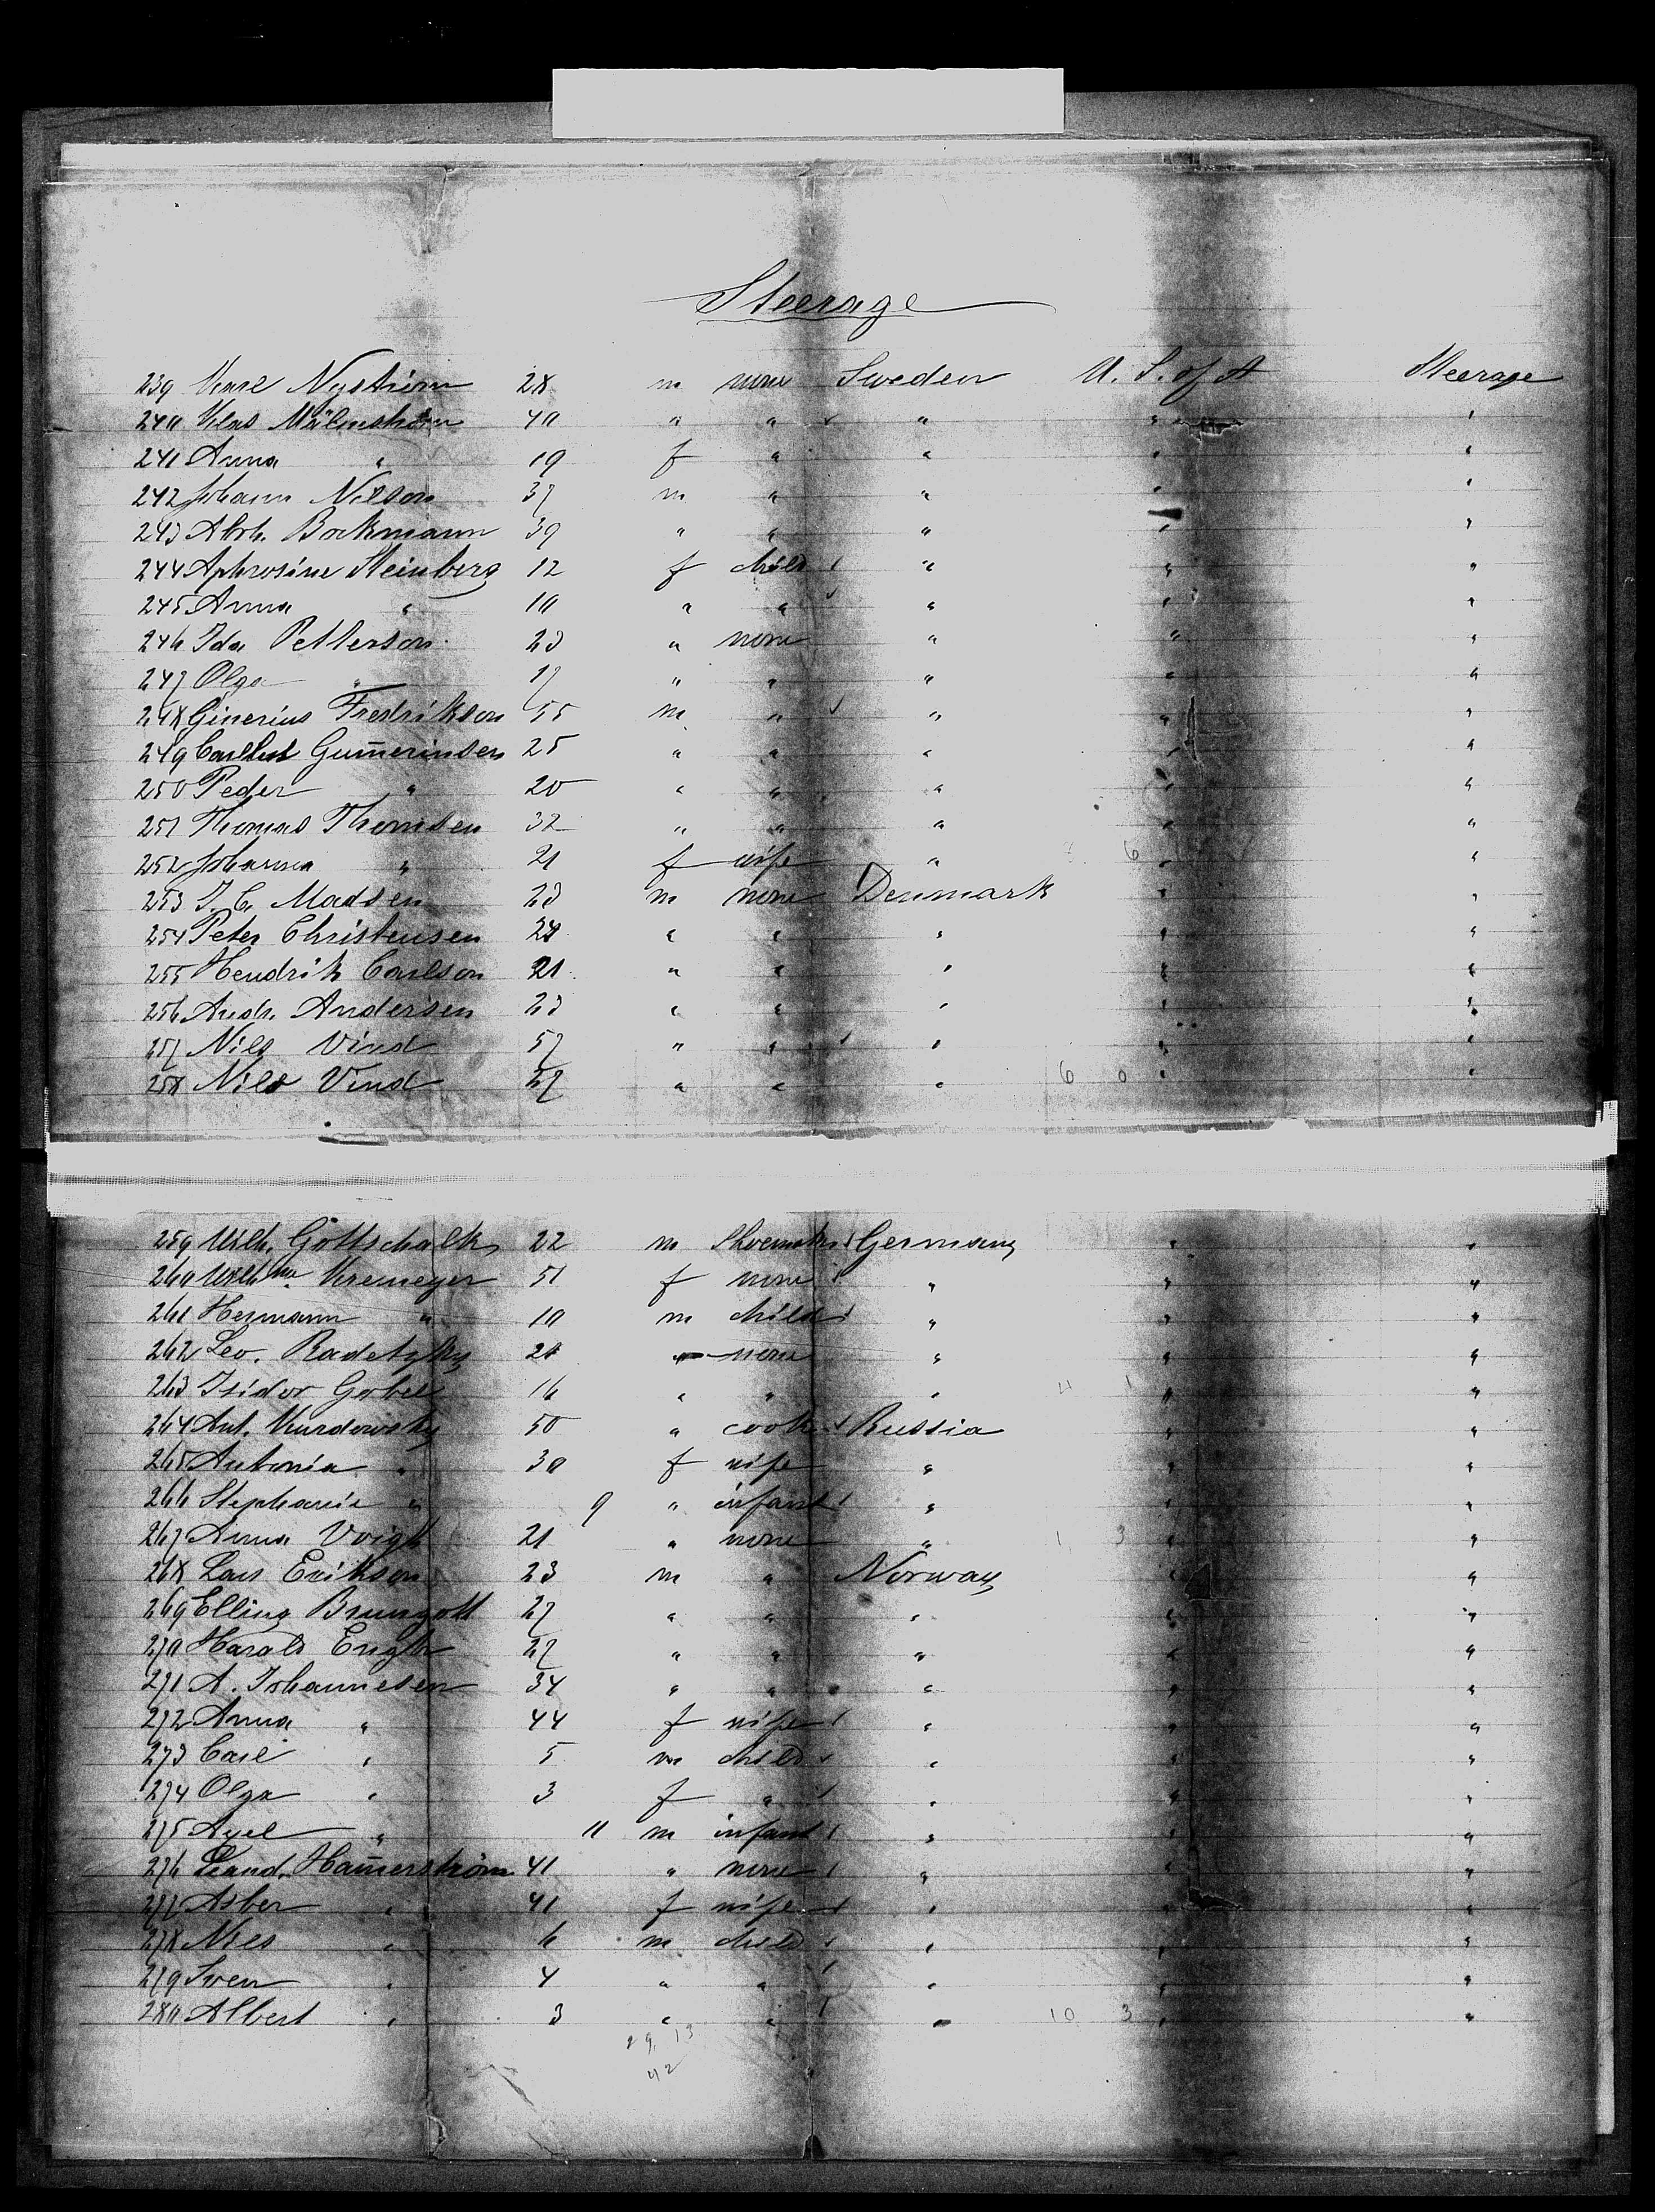 Steerage
239 Karl Nyström 28 m none Sweden U. S. of A Steerage
240 Klas Malmström 40 " " " " "
241 Anna " 19 f " " " "
242 Johann Nilson 37 m " " " "
243 Abrh. Bockmann 39 " " " " "
244 Aphrosine Steinberg 12 f child " " "
245 Anna " 10 " " " " "
246 Ida Petterson 23 " none " " "
247 Olga " 17 " " " " "
248 Ginerius Fredrikson 55 m " " " "
249 Gum̄erinsen 25 " " " " "
250 Peder " 20 " " " " "
251 Thomas Thomsen 32 " " " " "
252 Johanna " 21 f wife " " "
253 J. C. Madsen 23 m none Denmark " "
254 Peter Christensen 24 " " " " "
255 Hendrik Carlson 21 " " " " "
256 Andr. Andersen 23 " " " " "
257 Nils Vind 57 " " " " "
258 Nils Vind 27 " " " 6 0 " "
259 Wilh. Gottschalk 22 m Germany " "
260 Wilhne Kremeyer 51 f none " " "
261 Hermann " 10 m child " " "
262 Leo. Radetzky " none " " "
263 Isidor Gobel 16 " " " 4 1 " "
264 Ant. Kurdowsky 50 " cook Russia " "
265 Antonia " 30 f wife " " "
266 Stephanie " 9 " infant " " "
267 Anna Voigt 21 " none " 1 3 " "
268 Lars Erikson 23 m " Norway " "
269 Elling 27 " " " " "
270 Harald 27 " " " " "
271 A. Johannesen 34 " " " " "
272 Anna " 44 f wife " " "
273 Carl " 5 m child " " "
274 Olga " 3 f " " " "
275 Axel " 11 m infant " " "
276 Ham̄erström 41 " none " " "
277 Asber " 41 f wife " " "
278 Nils " 6 m child " " "
279 Sven " 4 " " " " "
280 Albert " 3 " " " 10 3 " "
29, 13
42